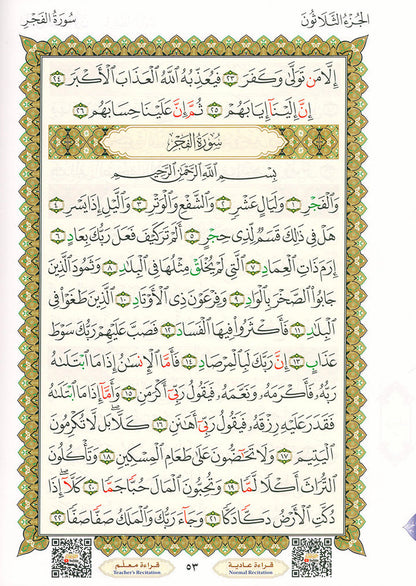 الجزء الثلاثون
سورة الفجر
إِلَّا مَن تَوَلَّىٰ وَكَفَرَ ٢٣ فَيُعَذِّبُهُ اللَّهُ الْعَذَابَ الْأَكْبَرَ ٢٤
إِنَّ إِلَيْنَا إِيَابَهُمْ ٢٥ ثُمَّ إِنَّ عَلَيْنَا حِسَابَهُم ٢٦
سُورَةُ الفَجْرِ
بِسْمِ اللَّهِ الرَّحْمَٰنِ الرَّحِيمِ
وَالْفَجْرِ ١ وَلَيَالٍ عَشْرٍ ٢ وَالشَّفْعِ وَالْوَتْرِ ٣ وَاللَّيْلِ إِذَا يَسْرِ ٤
هَلْ فِي ذَٰلِكَ قَسَمٌ لِّذِي حِجْرٍ ٥ أَلَمْ تَرَ كَيْفَ فَعَلَ رَبُّكَ بِعَادٍ ٦
إِرَمَ ذَاتِ الْعِمَادِ ٧ الَّتِي لَمْ يُخْلَقْ مِثْلُهَا فِي الْبِلَادِ ٨ وَثَمُودَ الَّذِينَ
جَابُوا الصَّخْرَ بِالْوَادِ ٩ وَفِرْعَوْنَ ذِي الْأَوْتَادِ ١٠ الَّذِينَ طَغَوْا فِي
الْبِلَادِ ١١ فَأَكْثَرُوا فِيهَا الْفَسَادَ ١٢ فَصَبَّ عَلَيْهِمْ رَبُّكَ سَوْطَ
عَذَابٍ ١٣ إِنَّ رَبَّكَ لَبِالْمِرْصَادِ ١٤ فَأَمَّا الْإِنسَانُ إِذَا مَا ابْتَلَاهُ
رَبُّهُ فَأَكْرَمَهُ وَنَعَّمَهُ فَيَقُولُ رَبِّي أَكْرَمَنِ ١٥ وَأَمَّا إِذَا مَا ابْتَلَاهُ
فَقَدَرَ عَلَيْهِ رِزْقَهُ فَيَقُولُ رَبِّي أَهَانَنِ ١٦ كَلَّا بَل لَّا تُكْرِمُونَ
الْيَتِيمَ ١٧ وَلَا تَحَاضُّونَ عَلَىٰ طَعَامِ الْمِسْكِينِ ١٨ وَتَأْكُلُونَ
التُّرَاثَ أَكْلًا لَّمًّا ١٩ وَتُحِبُّونَ الْمَالَ حُبًّا جَمًّا ٢٠ كَلَّا إِذَا
دُكَّتِ الْأَرْضُ دَكًّا دَكًّا ٢١ وَجَاءَ رَبُّكَ وَالْمَلَكُ صَفًّا صَفًّا ٢٢
قراءة عادية
Normal Recitation
٥٣
قراءة معلم
Teacher's Recitation